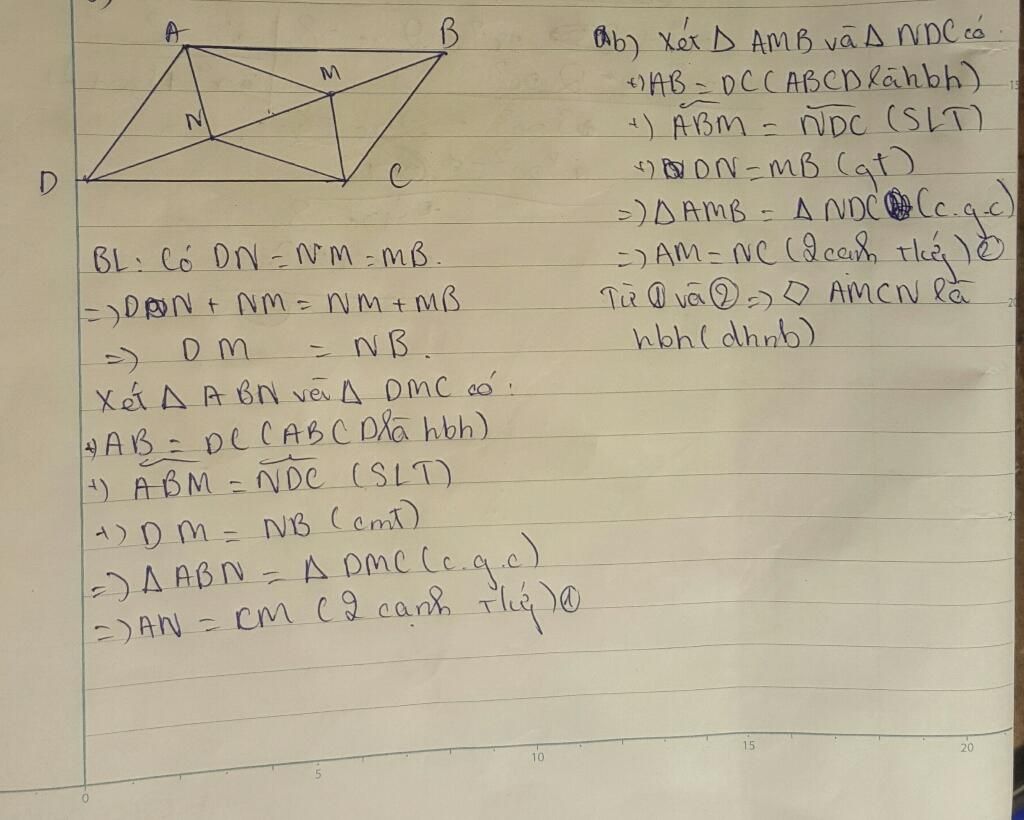 A
B
M
N
D
C
BL: Có DN = NM = MB.
=> DN + NM = NM + MB
=> DM = NB.
Xét Δ ABN và Δ DMC có:
+) AB = DC (ABCD là hbh)
+) ABM = NDC (SLT)
+) DM = NB (cmt)
=> Δ ABN = Δ DMC (c.g.c)
=> AN = CM (2 cạnh tứ) ①
b) Xét Δ AMB và Δ NDC có:
+) AB = DC (ABCD là hbh)
+) ABM = NDC (SLT)
+) DN = MB (gt)
=> Δ AMB = Δ NDC (c.g.c)
=> AM = NC (2 cạnh tứ) ②
Từ ① và ② => ◇ AMCN là
hbh (dhnb)
0
5
10
15
20